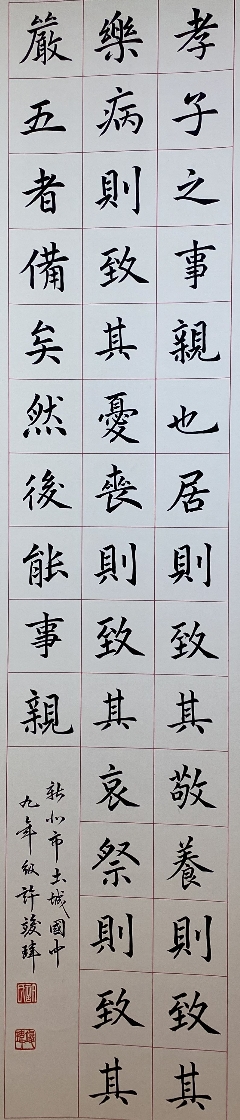 孝子之事親也居則致其敬養則致其
樂病則致其憂喪則致其哀祭則致其
嚴五者備矣然後能事親
新北市土城國中
九年級許竣瑋